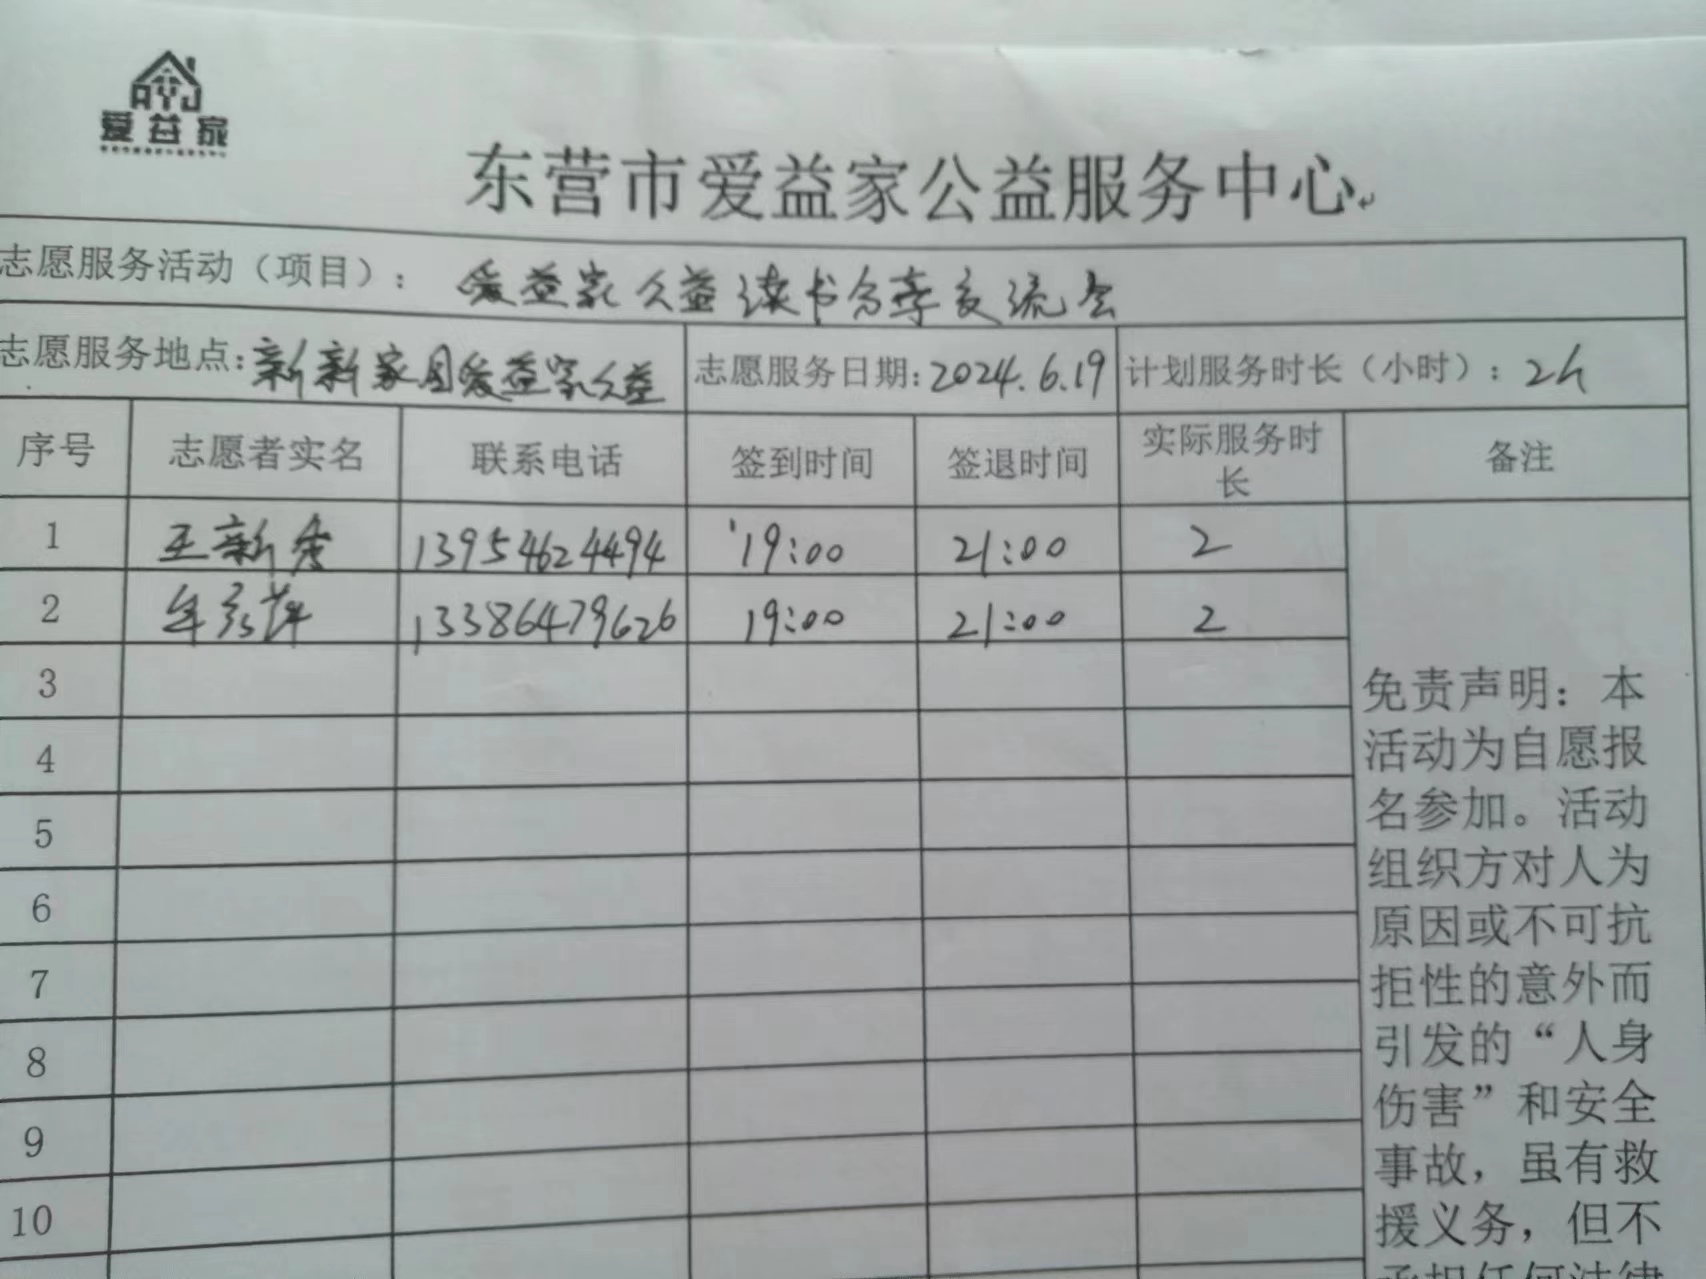 爱益家
东营市爱益家公益服务中心
志愿服务活动（项目）：爱益家公益读书分享交流会
志愿服务地点：新新家园爱益家公益 志愿服务日期：2024.6.19 计划服务时长（小时）：2h
序号 志愿者实名 联系电话 签到时间 签退时间 实际服务时长 备注
1 王新秀 13954624494 19:00 21:00 2
2 牟 萍 13386479626 19:00 21:00 2
3
4
5
6
7
8
9
10
免责声明：本
活动为自愿报
名参加。活动
组织方对人为
原因或不可抗
拒性的意外而
引发的“人身
伤害”和安全
事故，虽有救
援义务，但不
承担任何法律